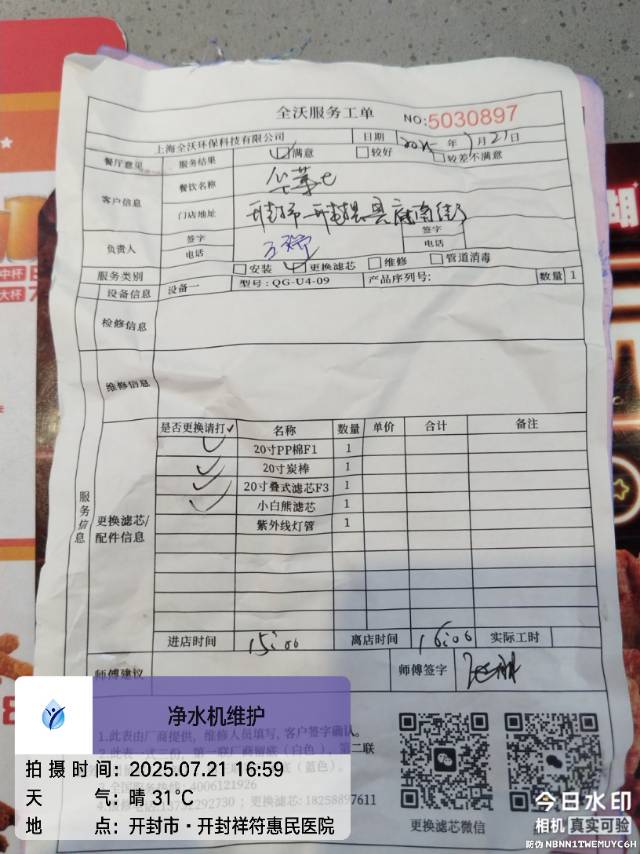 全沃服务工单
NO:5030897
上海全沃环保科技有限公司
日期 2025年7月21日
餐厅意见 服务结果 满意 较好 较差不满意
客户信息 餐饮名称 华莱士
门店地址 开封市-开封县县府南街
负责人 签字 签字
电话 电话
服务类别 安装 更换滤芯 维修 管道消毒
设备信息 设备一 型号:QG-U4-09 产品序列号: 数量 1
检修信息
维修信息
服务信息
更换滤芯/配件信息
是否更换请打✓ 名称 数量 单价 合计 备注
✓ 20寸PP棉F1 1
✓ 20寸炭棒 1
✓ 20寸叠式滤芯F3 1
✓ 小白熊滤芯 1
紫外线灯管 1
进店时间 15:06 离店时间 16:06 实际工时
师傅建议 师傅签字
1.此表由厂商提供,维修人员填写,客户签字确认。
2.此表一式三份,第一联厂商留底(白色),第二联
底(蓝色)。
3.全国服务热线:4006121926
更换滤芯:18258897611
更换滤芯微信
净水机维护
拍摄时间:2025.07.21 16:59
天气:晴 31℃
地点:开封市·开封祥符惠民医院
今日水印
相机 真实可验
防伪 NBNN1TWEMUYC6H
中杯
大杯